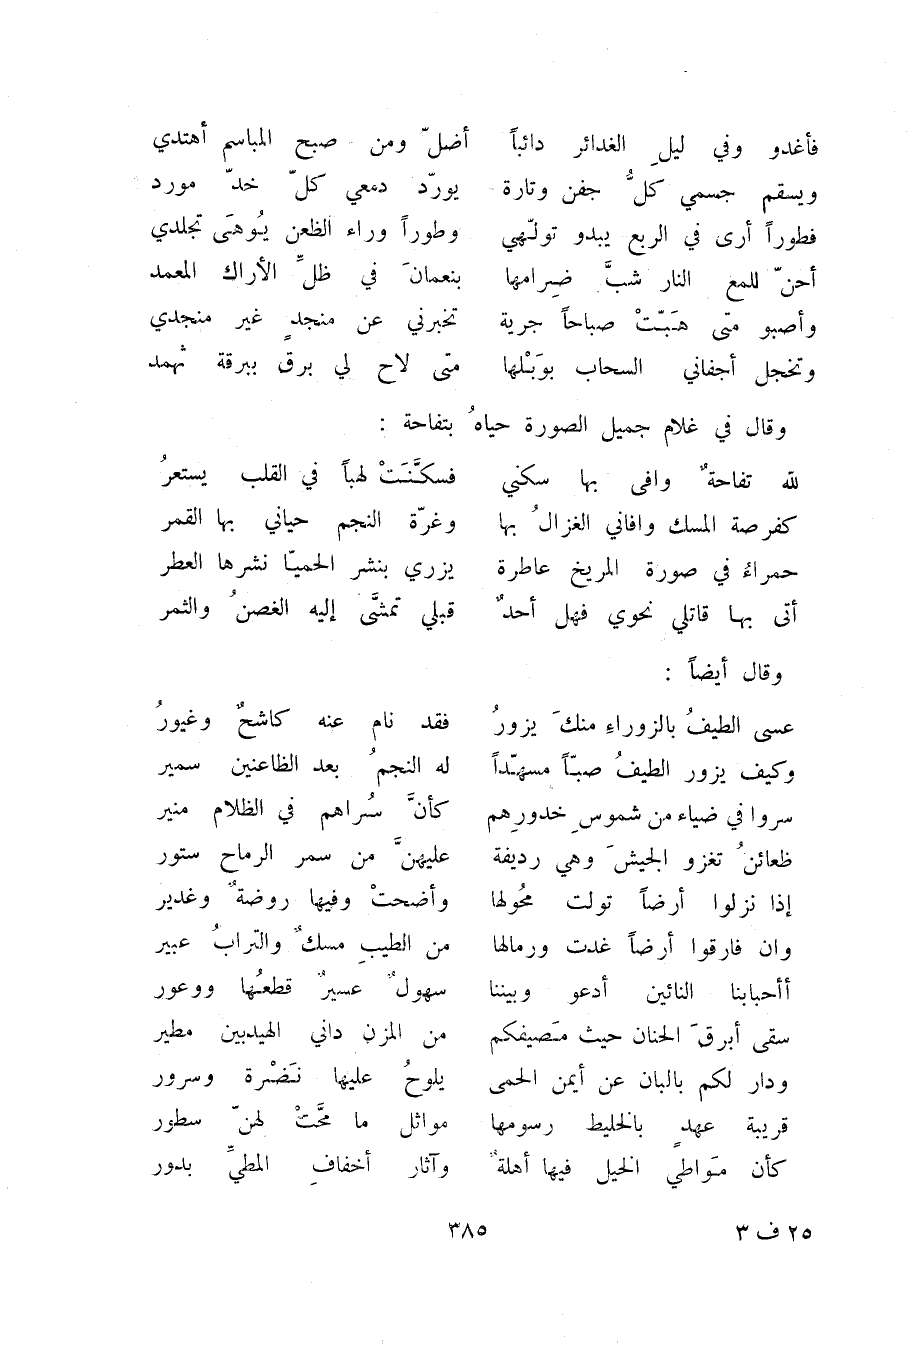 فأغدو وفي ليلِ الغدائر دائباً أضلّ ومن صبح المباسم أهتدي
ويسقم جسمي كلُّ جفن وتارة يورّد دمعي كلّ خدّ مورد
فطوراً أرى في الربع يبدو تولّهي وطوراً وراء الظعن يُوهَى تجلدي
أحنّ للمع النار شبَّ ضِرامها بنعمانَ في ظلِّ الأراك المعمد
وأصبو متى هَبّتْ صباحاً جرية تخبرني عن منجدٍ غير منجدي
وتخجل أجفاني السحاب بوَبْلها متى لاح لي برق ببرقة ثهمد
وقال في غلام جميل الصورة حياهُ بتفاحة :
لله تفاحةٌ وافى بها سكني فسكَّنَتْ لهباً في القلب يستعرُ
كفرصة المسك وافاني الغزالُ بها وغرّة النجم حياني بها القمر
حمراءُ في صورة المريخ عاطرة يزري بنشر الحميّا نشرها العطر
أتى بها قاتلي نحوي فهل أحدٌ قبلي تمشَّى إليه الغصنُ والثمر
وقال أيضاً :
عسى الطيفُ بالزوراءِ منكَ يزورُ فقد نام عنه كاشحٌ وغيورُ
وكيف يزور الطيفُ صبّاً مسهّداً له النجمُ بعد الظاعنين سمير
سروا في ضياء من شموسِ خدورِهم كأنَّ سُراهم في الظلام منير
ظعائنُ تغزو الجيشَ وهي رديفة عليهنَّ من سمر الرماح ستور
إذا نزلوا أرضاً تولت محُولها وأضحتْ وفيها روضةٌ وغدير
وان فارقوا أرضاً غدت ورمالها من الطيبِ مسكٌ والترابُ عبير
أأحبابنا النائين أدعو وبيننا سهولٌ عسيرٌ قطعُها ووعور
سقى أبرقَ الحنان حيث مَصيفكم من المزنِ داني الهيدبين مطير
ودار لكم بالبان عن أيمن الحمى يلوحُ عليها نَضْرة وسرور
قريبة عهدٍ بالخليط رسومها مواثل ما محَّتْ لهنّ سطور
كأن مَواطي الخيل فيها أهلةٌ وآثار أخفافِ المطيِّ بدور
٢٥ ف ٣ ٣٨٥